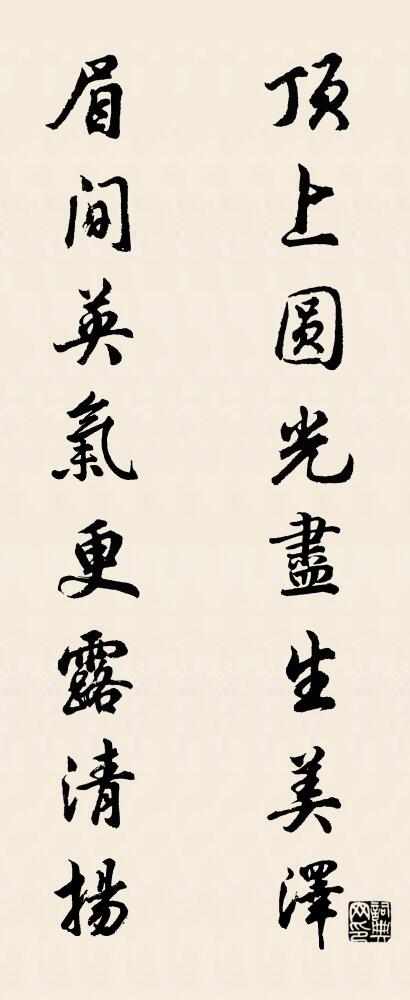 頂上圓光盡生美澤
眉間英氣更露清揚
詞典网印